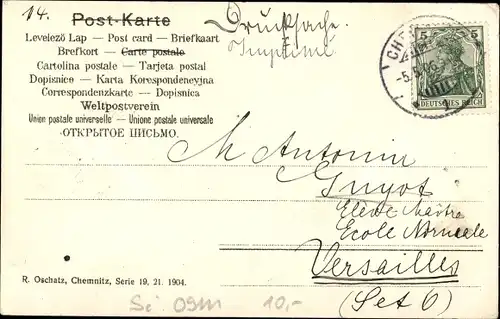 14.
Post-Karte
Drucksache
Imprimé
Levelező Lap — Post card — Briefkaart
Brefkort — Carte postale —
Cartolina postale — Tarjeta postal
Dopisnice — Karta Korespondencyjna
Correspondenzkarte — Dopisnica
Weltpostverein
Union postale universelle — Unione postale universale
ОТКРЫТОЕ ПИСЬМО.
5 5
DEUTSCHES REICH
M Antonin
Guyot
Elève Maître
Ecole Normale
Versailles
(Set O)
R. Oschatz, Chemnitz, Serie 19, 21. 1904.
10,-